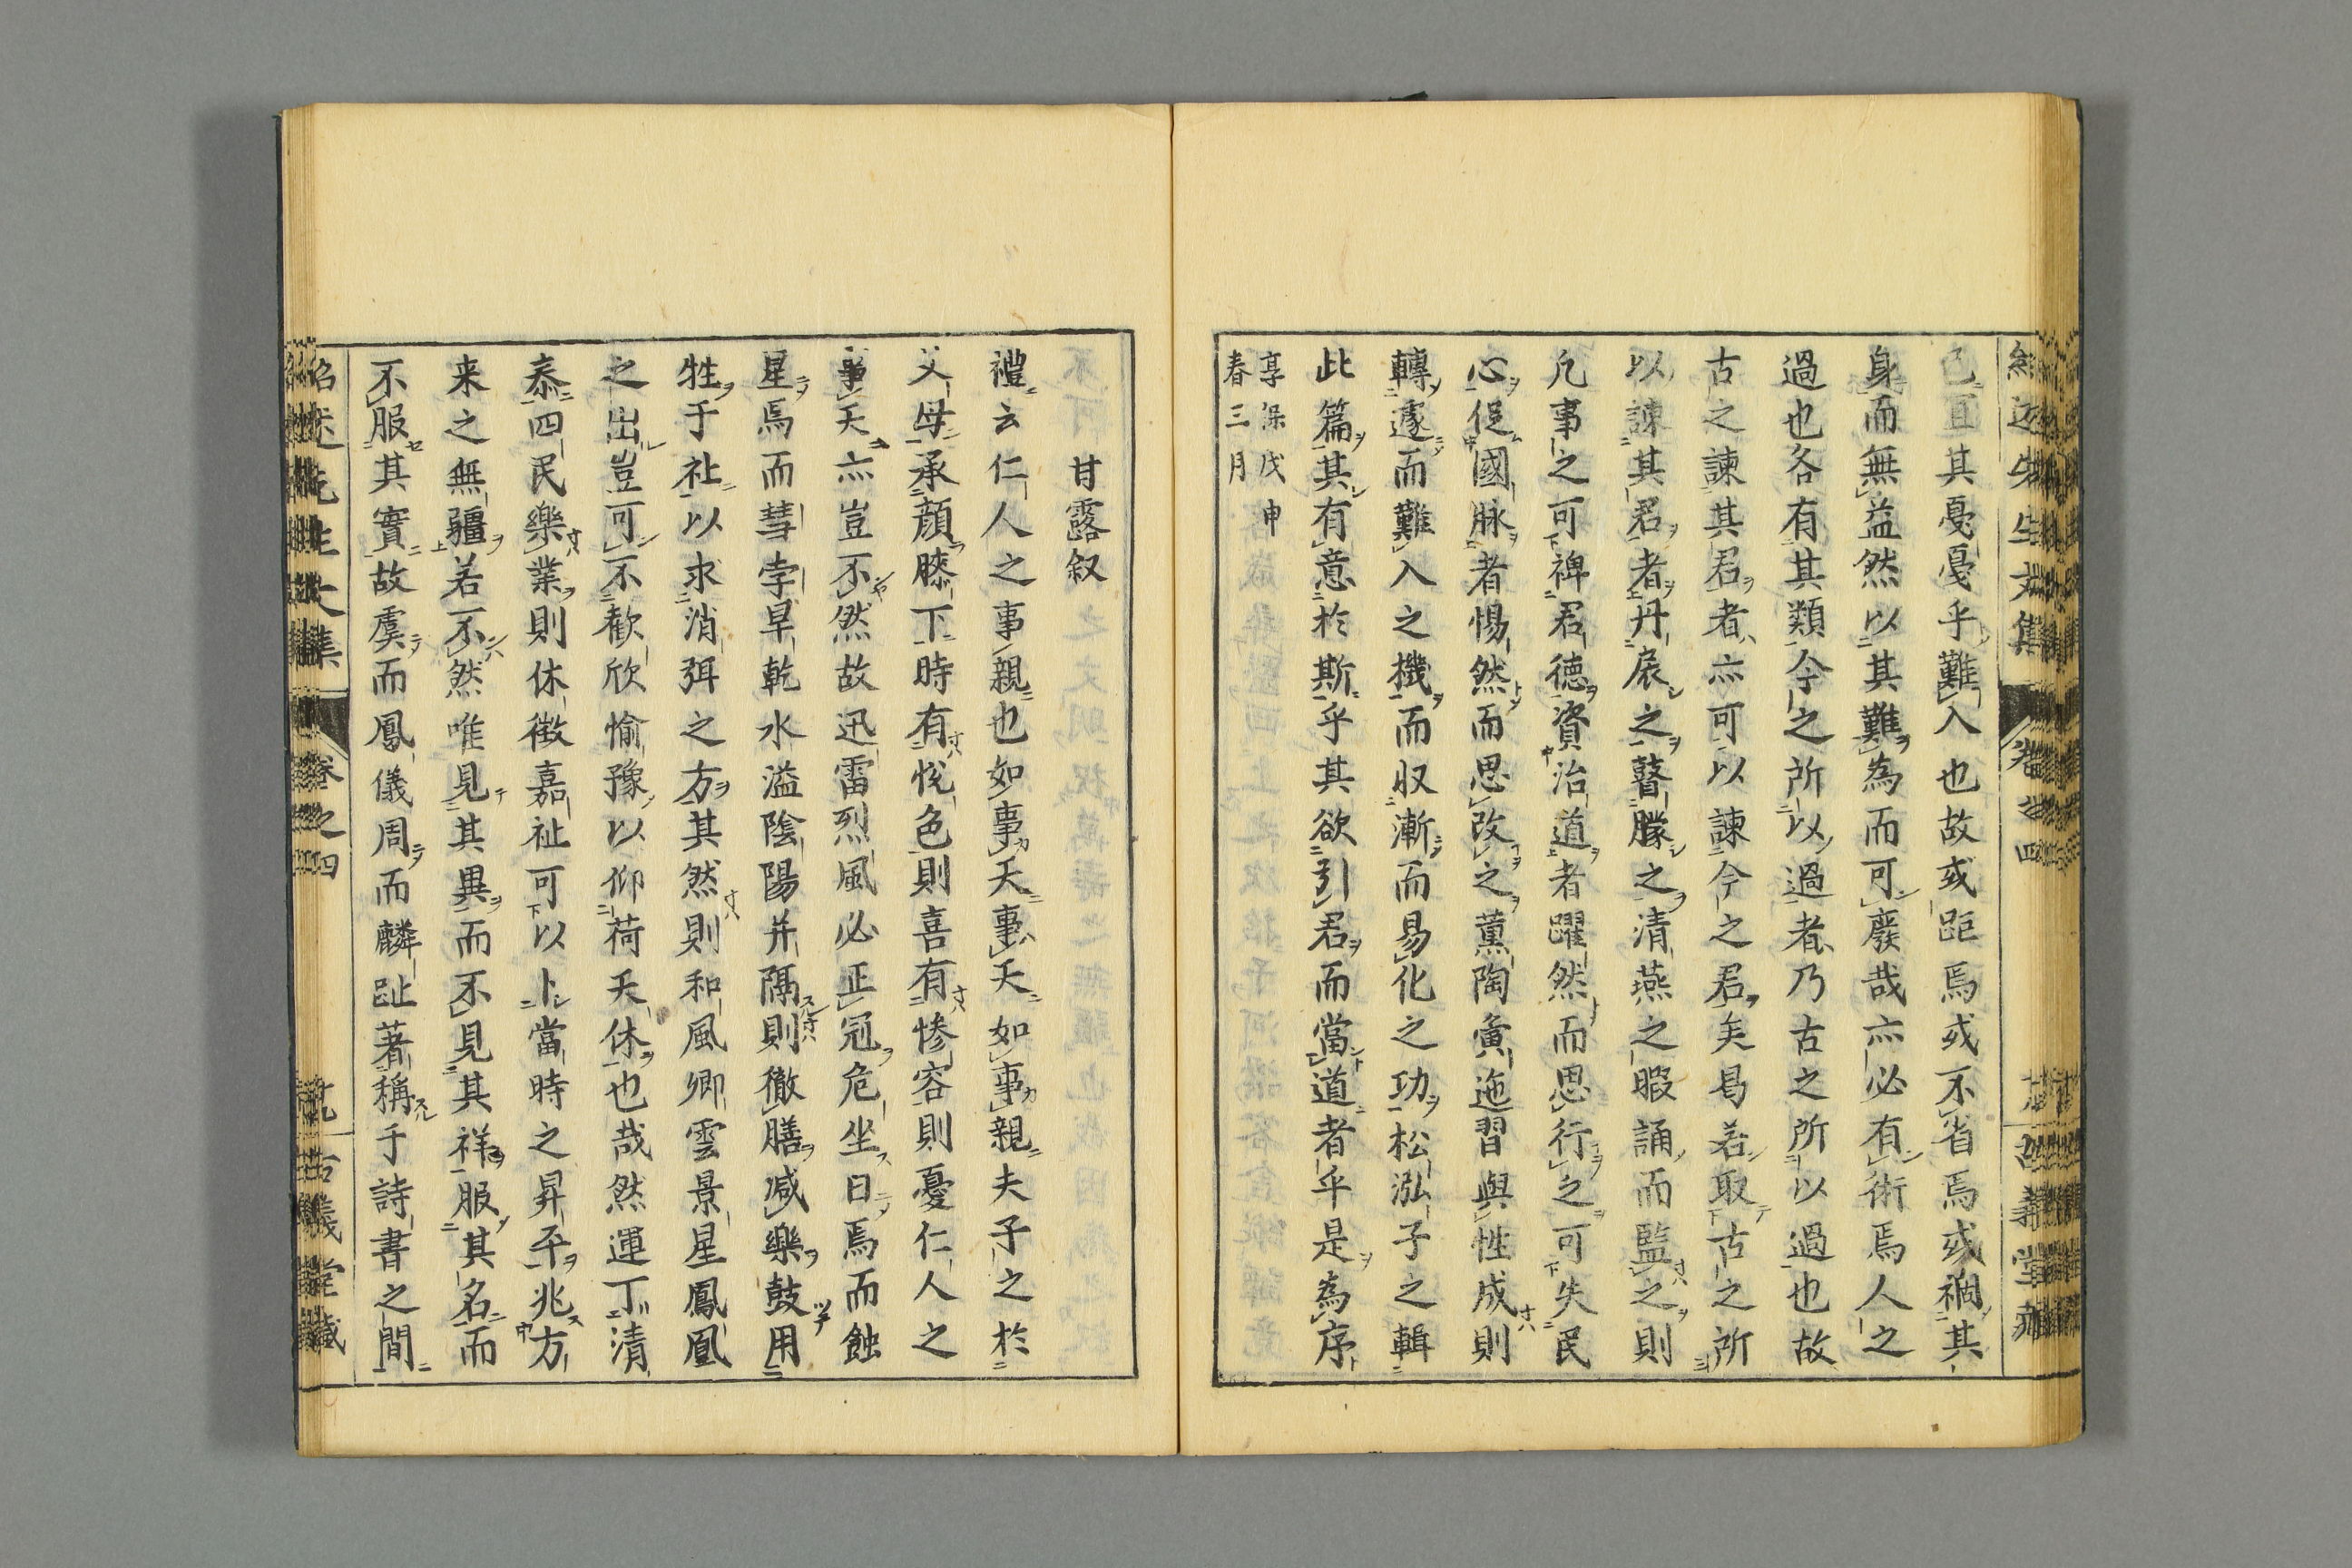 己直其戞戞乎難入也故或距焉或不省焉或禍其
身而無益然以其難為而可廢哉亦必有術焉人之
過也各有其類今之所以過者乃古之所以過也故
古之諫其君者亦可以諫今之君矣曷若取古之所
以諫其君者丹扆之瞽矇之清燕之暇誦而監之則
凢事之可裨君德資治道者躍然而思行之可失民
心促國脉者惕然而思改之薫陶夤迤習與性成則
轉遽而難入之機而収漸而易化之功松泓子之輯
此篇其有意於斯乎其欲引君而當道者乎是為序
享保戊申
春三月
甘露叙
禮云仁人之事親也如事天事天如事親夫子之於
父母承顔膝下時有悅色則喜有慘容則憂仁人之
事天亦豈不然故迅雷烈風必正冠危坐日焉而蝕
星焉而彗孛旱乾水溢陰陽并隔則徹膳减樂鼓用
牲于社以求消弭之方其然則和風卿雲景星鳳凰
之出豈可不歡欣愉豫以仰荷天休也哉然運丁清
泰四民樂業則休徴嘉祉可以卜當時之昇平兆方
来之無疆若不然唯見其異而不見其祥服其名而
不服其實故虞而鳳儀周而麟趾著稱于詩書之間
紹述先生文集
卷之四
古義堂藏